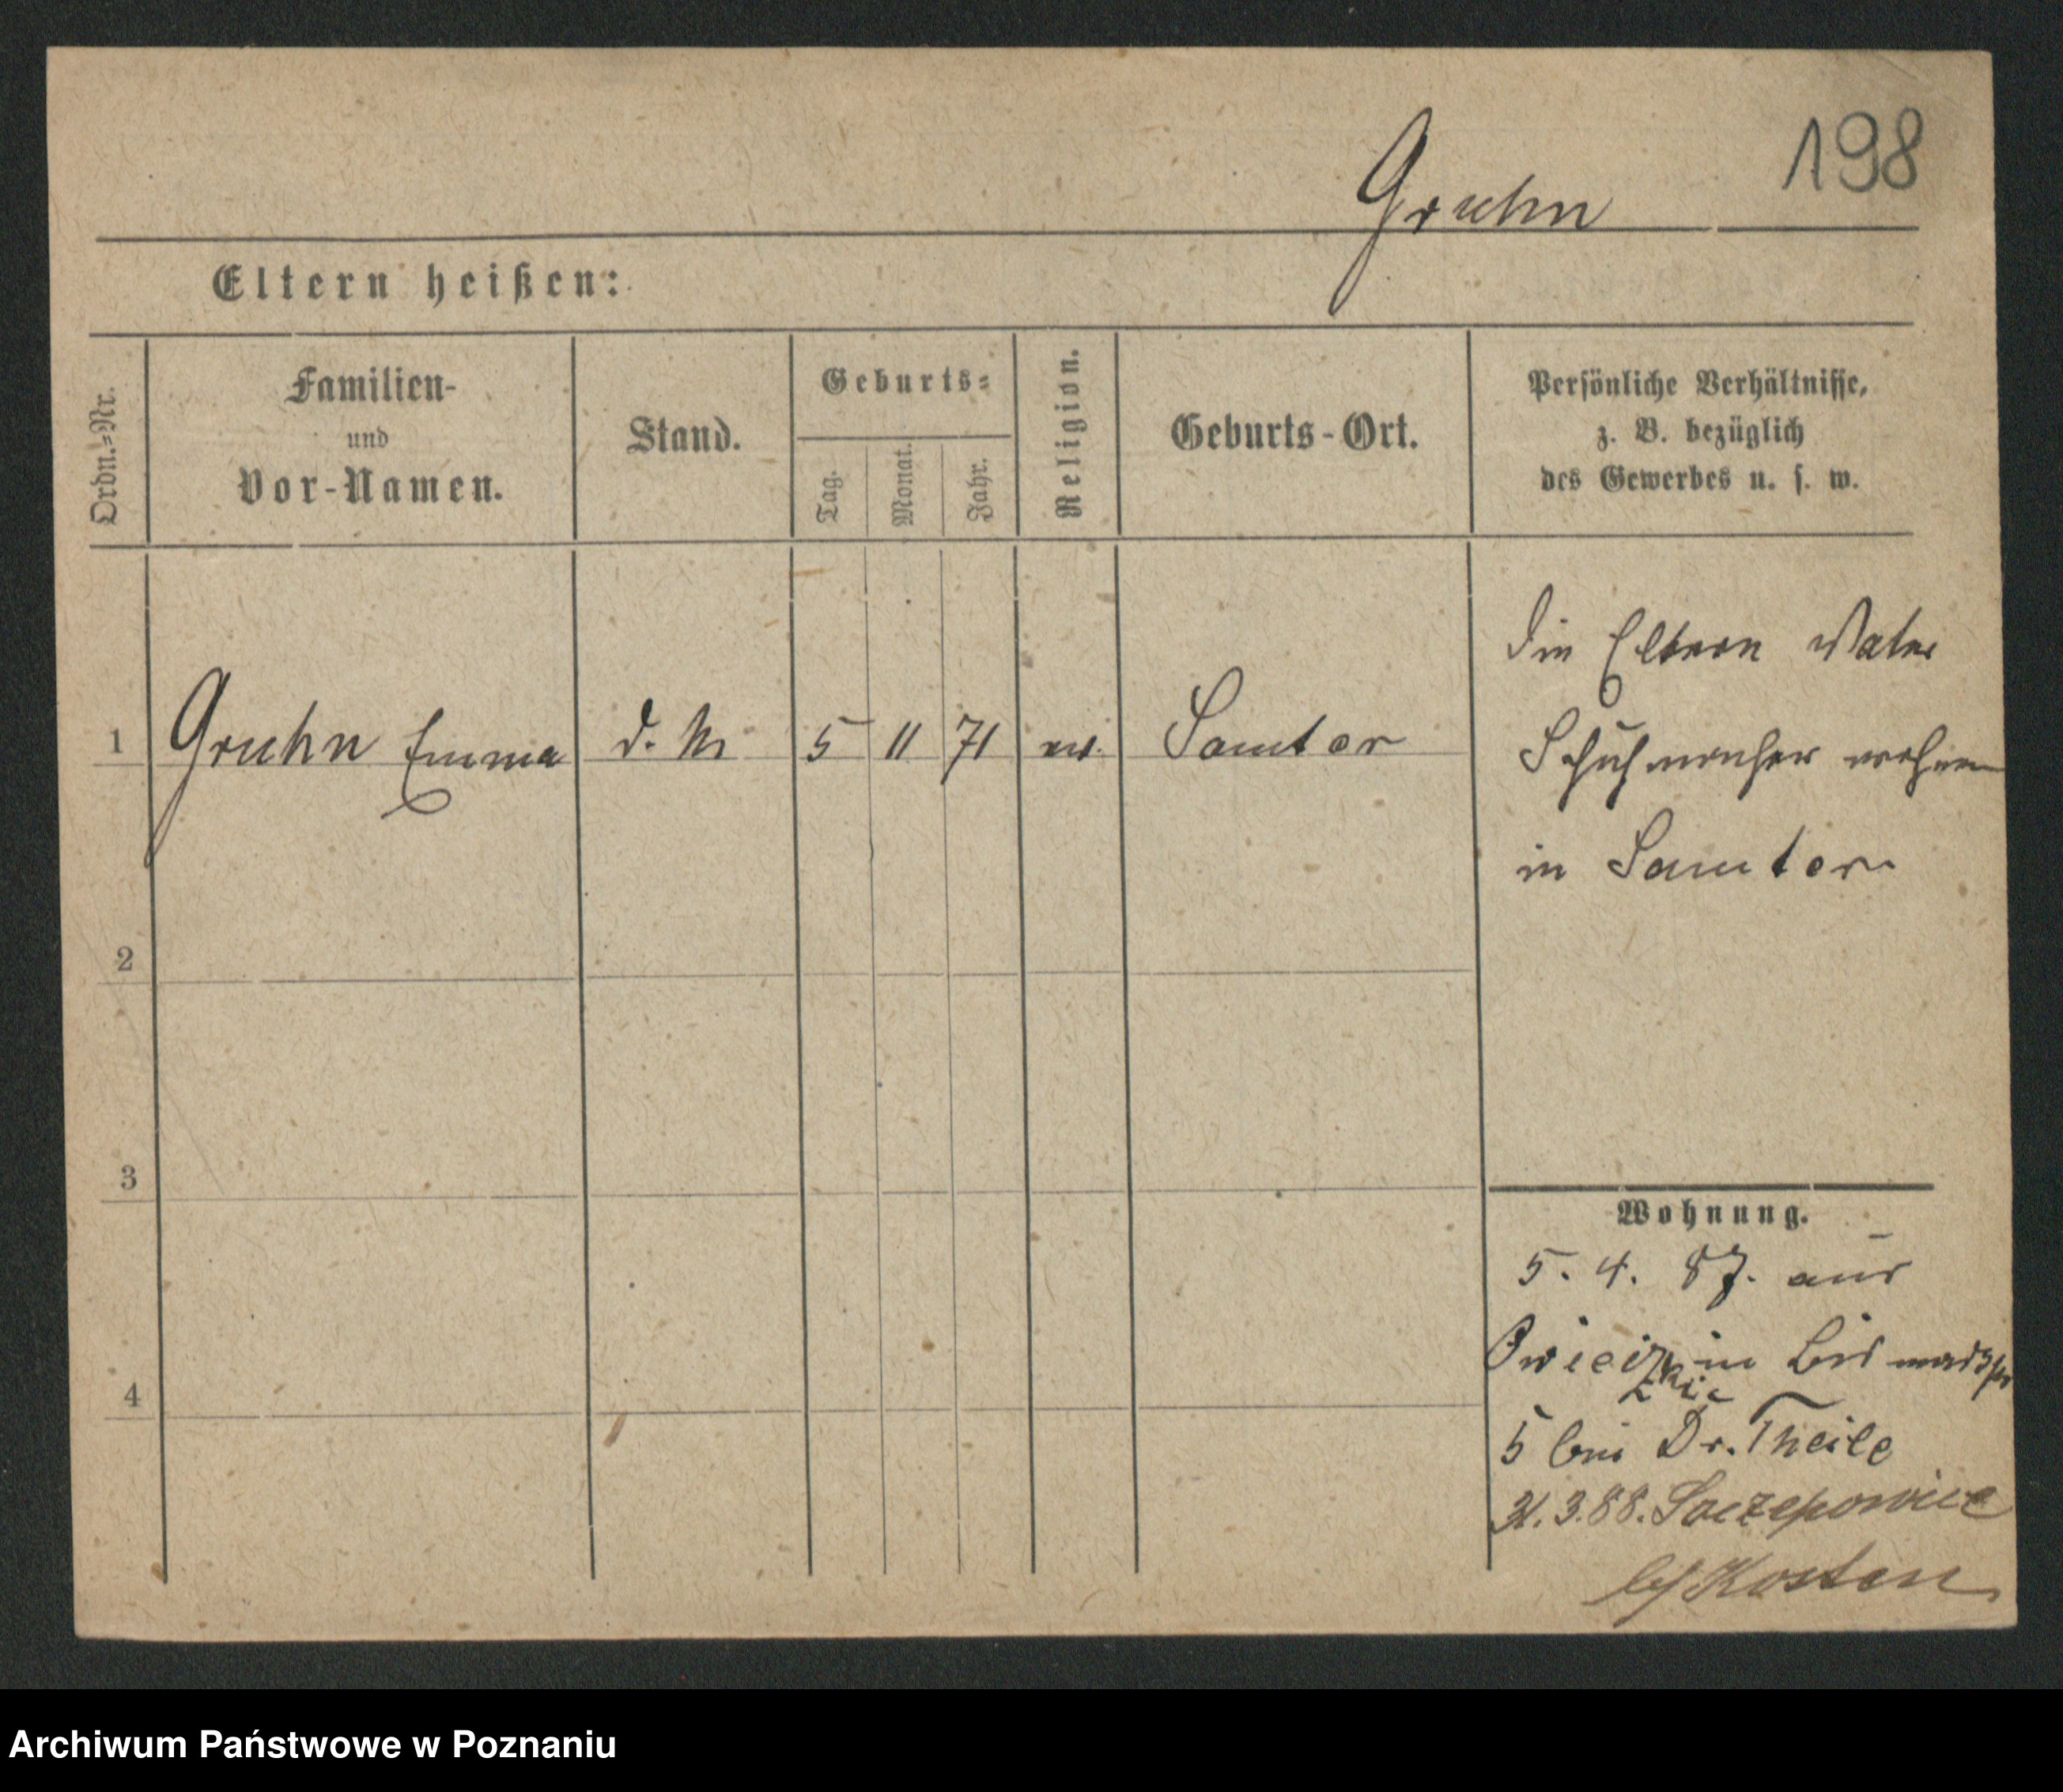 198
Gruhn
Eltern heißen:
Ordn.=Nr.
Familien-
und
Vor-Namen.
Stand.
Geburts=
Tag.
Monat.
Jahr.
Religion.
Geburts-Ort.
Persönliche Verhältnisse,
z. B. bezüglich
des Gewerbes u. s. w.
1 Gruhn Emma d. M 5 11 71 ev. Samter
die Eltern Vater
Schuhmacher wohnen
in Samter
2
3
4
Wohnung.
5. 4. 87. aus
in
5 bei Dr. Theile
31. 3. 88.
b/ Kosten
Archiwum Państwowe w Poznaniu